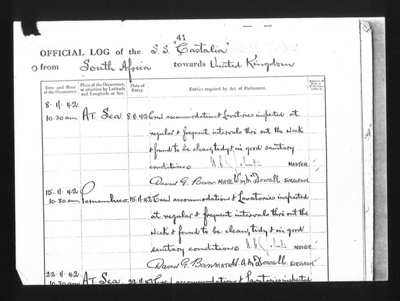 41
OFFICIAL LOG of the S.S. "Castalia"
from South Africa towards United Kingdom
Date and Hour of the Occurrence.
Place of the Occurrence, or situation by Latitude and Longitude at Sea.
Date of Entry.
Entries required by Act of Parliament.
8.11.42 10.30am At Sea 8.11.42 Crew accommodation & Lavatories inspected at
regular & frequent intervals thro out the week
& found to be clean, tidy & in good sanitary
condition MASTER
David G. Bann MATE Dowall SURGEON
15.11.42 10.30am Pernambuco 15.11.42 Crew accommodation & Lavatories inspected
at regular & frequent intervals thro out the
week & found to be clean, tidy & in good
sanitary condition MASTER
David G. Bann MATE Dowall SURGEON
22.11.42 10.30am At Sea 22.11.42 Crew accommodation & Lavatories inspected